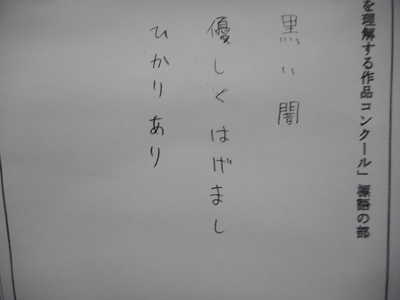 を理解する作品コンクール」標語の部
黒い闇
優しくはげまし
ひかりあり